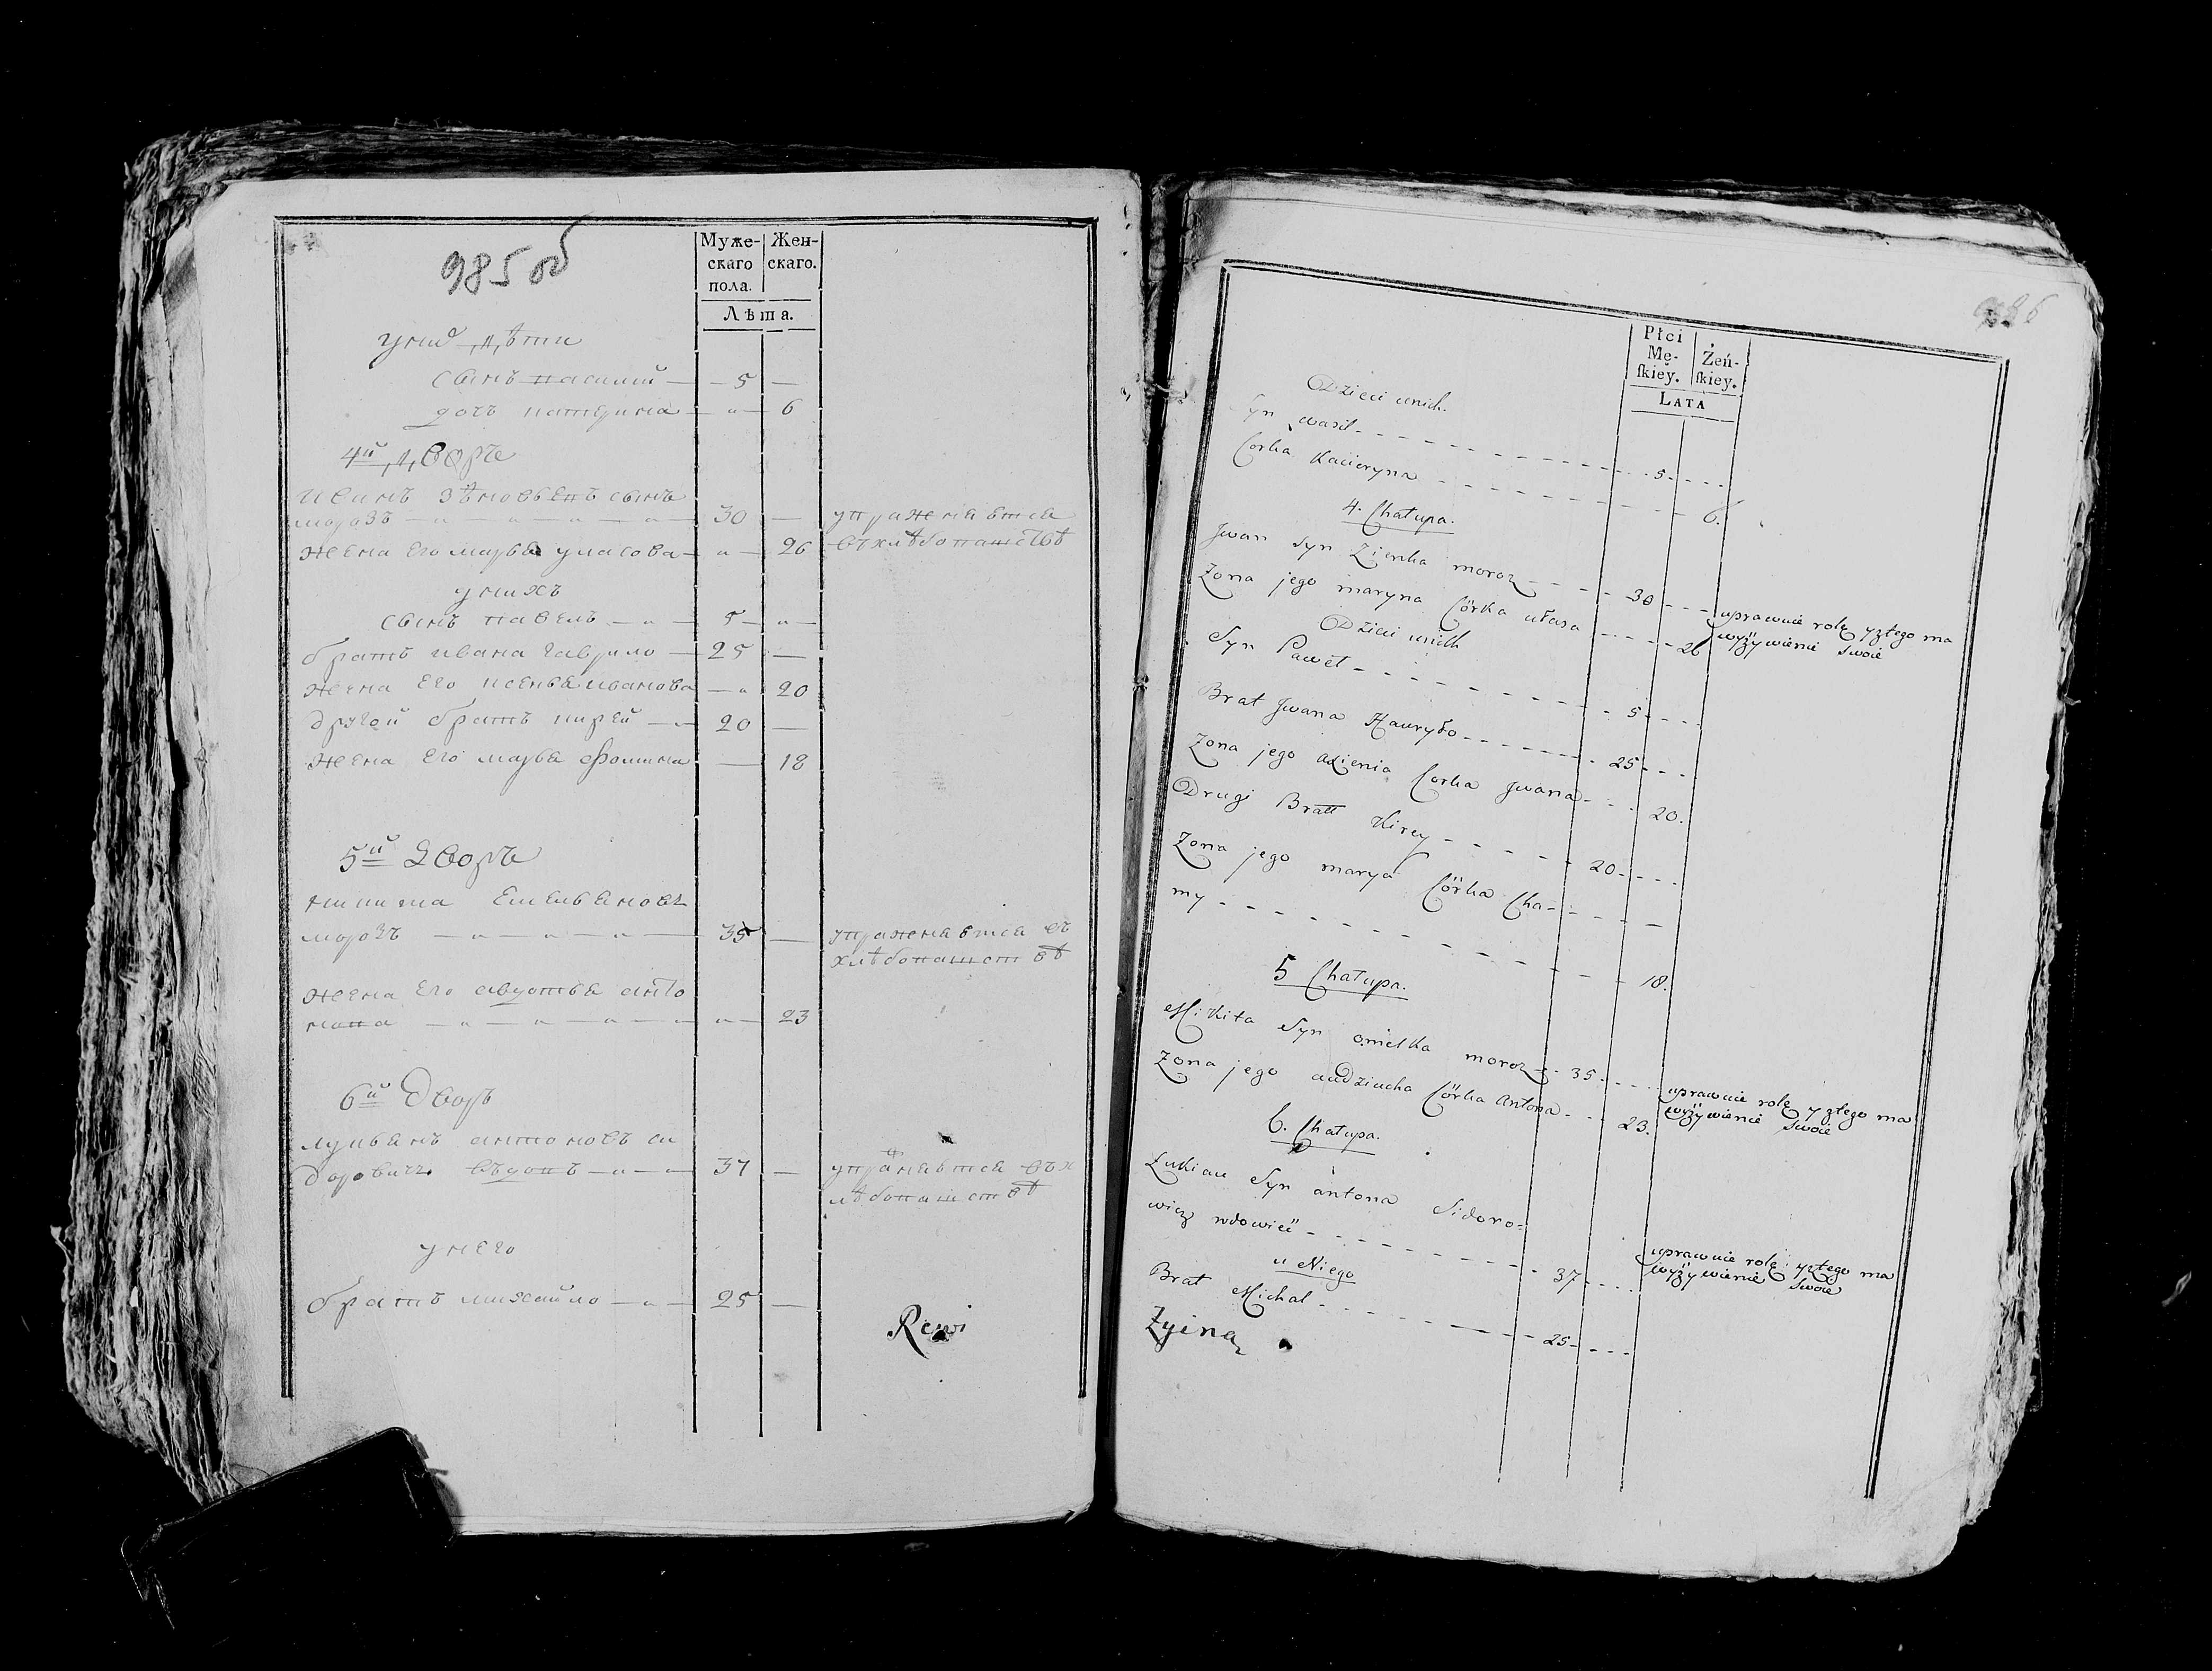 985 об
Муже- Жен-
скаго скаго.
пола.
Лѣта.
у них дѣти
сынъ василий — — 5 —
дочь катерина — „ — 6
4й дворъ
иванъ зѣновьевъ сынъ
морозъ — „ — „ — „ — 30 — упражняется
жена его марья уласова — „ — 26 въ хлѣбопашествѣ
у нихъ
сынъ павелъ — „ — 5 — „ —
братъ ивана гаврило — 25 —
жена его ксенья иванова — „ 20
другой братъ кирей — „ 20 —
жена его марья фомина — 18
5й Дворъ
микита емельяновъ
морозъ — „ — „ — „ — 35 — упражняется въ
хлѣбопашествѣ
жена его авдотья анто
нова — „ — „ — „ — „ — 23
6й дворъ
лукьянъ антоновъ си
доровичъ вдовъ — „ — „ 37 — упражняется въ х
лѣбопашествѣ
у него
братъ михайло — „ — 25 —
Rewi
986
Płci
Mę- Żeń-
ſkiey. ſkiey.
LATA
Dzieci unich.
Syn wasil - - - 5 - - -
Corka Kacieryna - - - 6.
4. Chałupa.
Jwan Syn Zienka moroz - - - 30 - - - uprawuie rolę yztego ma
Zona jego maryna Córka ułasa - - - 26 wyżywienie swoie
Dzieci unich
Syn Paweł - - - 5 - - -
Brat Jwana Hawryło - - - 25 - - -
Zona jego axienia Corka Jwana - - - 20.
Drugi Bratt Kirey - - - 20 - - -
Zona jego marya Córka Cho- - - -
my - - - 18.
5 Chałupa.
Mikita Syn omelka moroz - - 35 - - - uprawuie rolę yztego ma
Zona jego audziucha Córka antona - - - 23. wyżywienie swoie
6. Chałupa.
Łukian Syn antona Sidoro=
wicz wdowiec - - - 37 - - - uprawuie rolę: yztego ma
u Niego wyżywienie swoie
Brat Michal - - - 25 - - -
Zyina